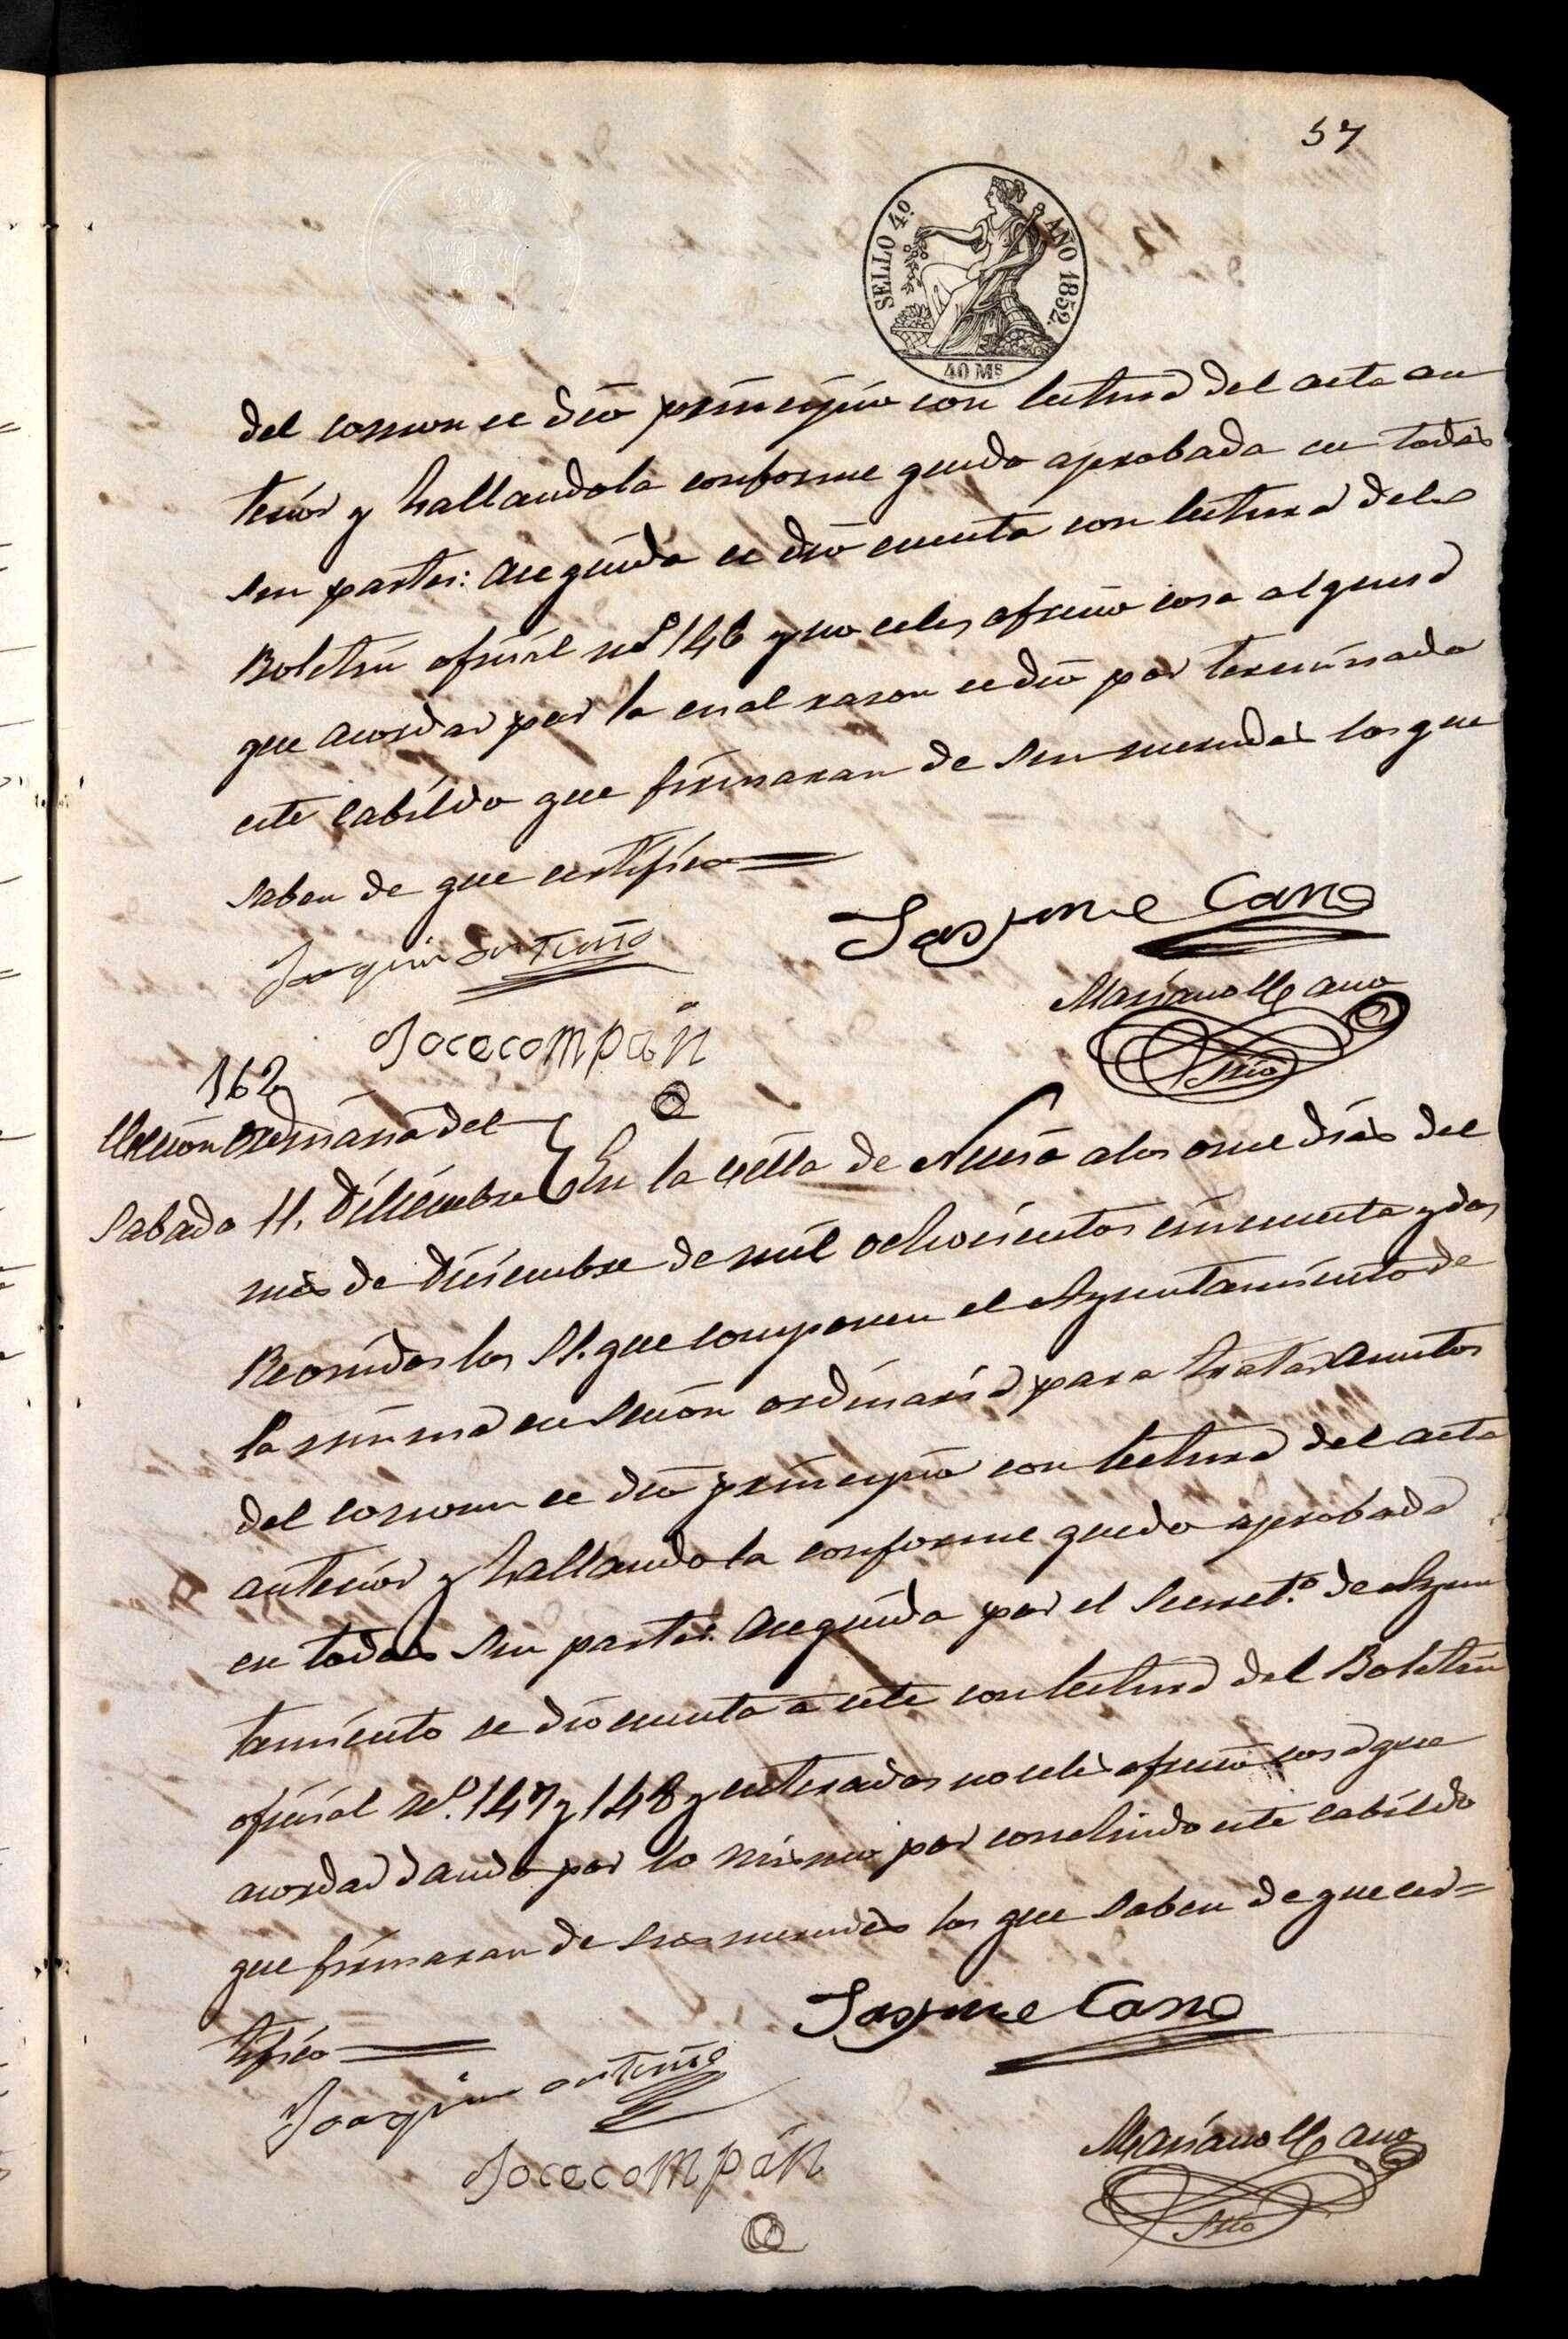 57
SELLO 4º AÑO 1852.
40 Ms
del comun se dió principio con lectura del acta an
terior y hallandola conforme quedo aprobada en todas
sus partes: aseguida se dió cuenta con lectura del
Boletin oficial nº 146 y no seles ofrecio cosa alguna
que acordar por la cual razon se dió por terminada
este cabildo que firmaran de sus mercedes los que
saben de que certifico
Jayme Cano
Joaquin Anteno
Mariano Llano
Srio
Jocecompán
162
Secion ordinaria del
Sabado 11. Diciembre
En la villa de Nucia a los once dias del
més de Diciembre de mil ochocientos cincuenta y dos
Reonidos los SS. que componen el Ayuntamiento de
la misma en secion ordinaria para tratar asuntos
del comun se dió principio con lectura del acta
anterior y hallandola conforme quedo aprobada
en todas sus partes. aseguida por el Secret.º de Ayun
tamiento se dio cuenta á este con lectura del Boletin
oficial nº. 147 y 148 y enterados no seles ofrecio cosa que
acordar dando por lo mismo por concluido este cabildo
que firmaran de sus mercedes los que saben de que cer=
tifico
Jayme Cano
Joaquin Anteno
Mariano Llano
Srio
Jocecompán